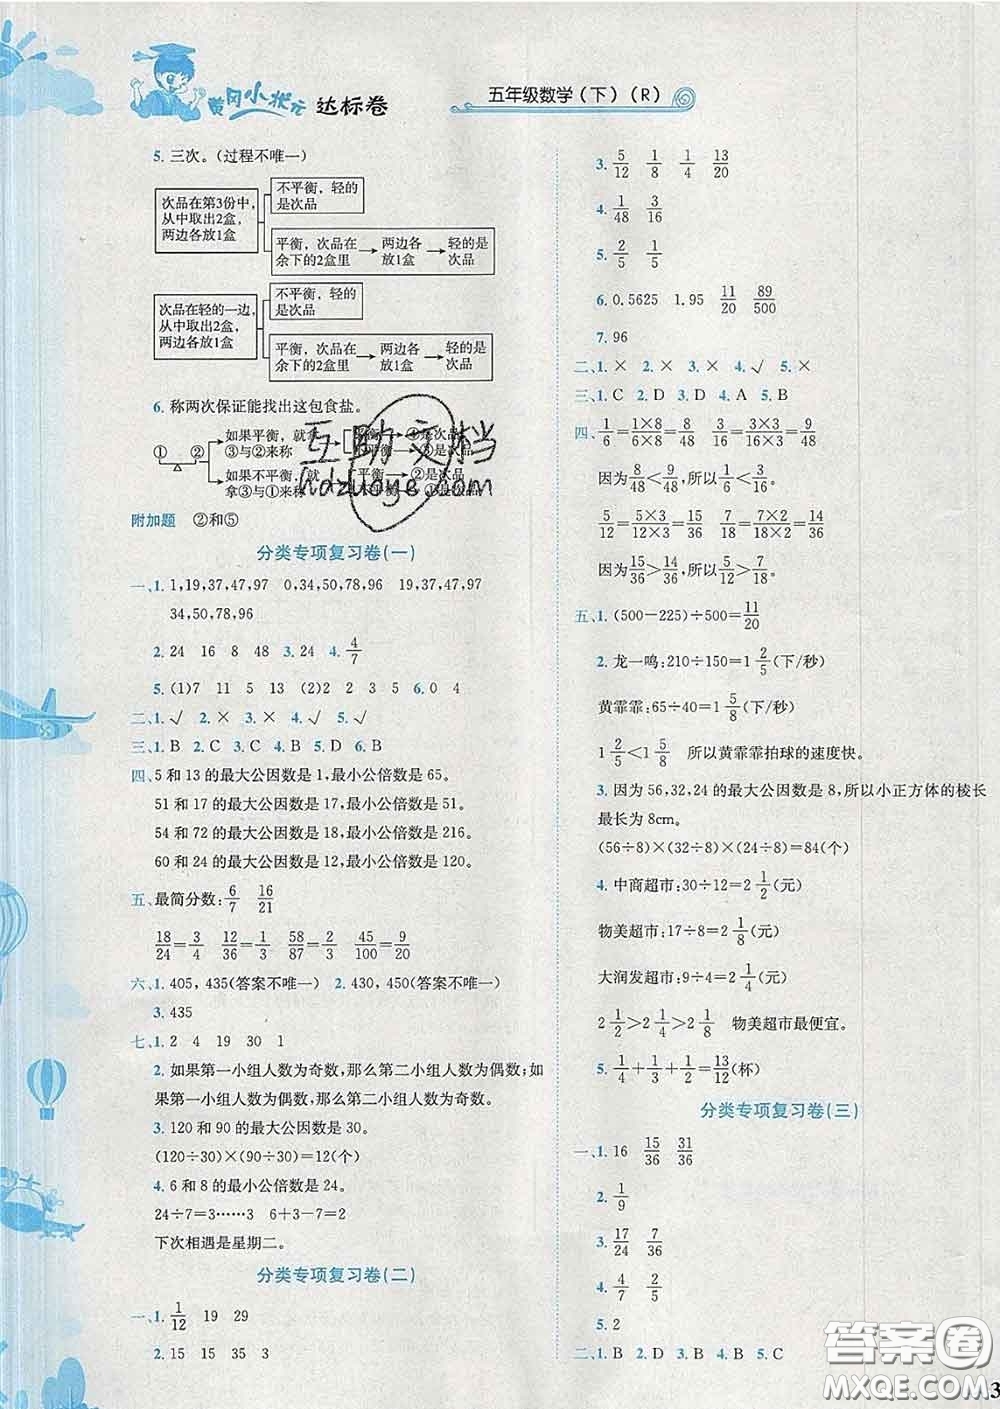 黄冈小状元 达标卷
五年级数学(下)(R)
5. 三次。(过程不唯一)
次品在第3份中,从中取出2盒,两边各放1盒
不平衡,轻的是次品
平衡,次品在余下的2盒里 → 两边各放1盒 → 轻的是次品
次品在轻的一边,从中取出2盒,两边各放1盒
不平衡,轻的是次品
平衡,次品在余下的2盒里 → 两边各放1盒 → 轻的是次品
6. 称两次保证能找出这包食盐。
① ②
如果平衡,就拿③与②来称
平衡 → ④是次品
不平衡 → ③是次品
如果不平衡,就拿③与①来称
平衡 → ②是次品
不平衡 → ①是次品
互助文档
hdzuoye.com
附加题 ②和⑤
分类专项复习卷(一)
一、1. 1,19,37,47,97 0,34,50,78,96 19,37,47,97
34,50,78,96
2. 24 16 8 48 3. 24 4. 4/7
5. (1)7 11 5 13 (2)2 3 2 7 2 5 6. 0 4
二、1. √ 2. × 3. × 4. √ 5. √
三、1. B 2. C 3. B 4. B 5. D 6. B
四、5 和 13 的最大公因数是 1,最小公倍数是 65。
51 和 17 的最大公因数是 17,最小公倍数是 51。
54 和 72 的最大公因数是 18,最小公倍数是 216。
60 和 24 的最大公因数是 12,最小公倍数是 120。
五、最简分数: 6/7 16/21
18/24=3/4 12/36=1/3 58/87=2/3 45/100=9/20
六、1. 405, 435(答案不唯一) 2. 430, 450(答案不唯一)
3. 435
七、1. 2 4 19 30 1
2. 如果第一小组人数为奇数,那么第二小组人数为偶数;如
果第一小组人数为偶数,那么第二小组人数为奇数。
3. 120 和 90 的最大公因数是 30。
(120÷30)×(90÷30)=12(个)
4. 6 和 8 的最小公倍数是 24。
24÷7=3……3 6+3-7=2
下次相遇是星期二。
分类专项复习卷(二)
一、1. 1/12 19 29
2. 15 15 35 3
3. 5/12 1/8 1/4 13/20
4. 1/48 3/16
5. 2/5 1/5
6. 0.5625 1.95 11/20 89/500
7. 96
二、1. × 2. × 3. × 4. √ 5. ×
三、1. C 2. D 3. D 4. A 5. B
四、1/6=1×8/6×8=8/48 3/16=3×3/16×3=9/48
因为8/48<9/48,所以1/6<3/16。
5/12=5×3/12×3=15/36 7/18=7×2/18×2=14/36
因为15/36>14/36,所以5/12>7/18。
五、1. (500-225)÷500=11/20
2. 龙一鸣:210÷150=1 2/5(下/秒)
黄霏霏:65÷40=1 5/8(下/秒)
1 2/5<1 5/8 所以黄霏霏拍球的速度快。
3. 因为 56,32,24 的最大公因数是 8,所以小正方体的棱长
最长为 8cm。
(56÷8)×(32÷8)×(24÷8)=84(个)
4. 中商超市:30÷12=2 1/2(元)
物美超市:17÷8=2 1/8(元)
大润发超市:9÷4=2 1/4(元)
2 1/2>2 1/4>2 1/8 物美超市最便宜。
5. 1/4+1/3+1/2=13/12(杯)
分类专项复习卷(三)
一、1. 16 15/36 31/36
2. 1/9
3. 17/24 7/36
4. 1/5 4/5
5. 2
二、1. B 2. C 3. B 4. B 5. C
答案圈
MXQE.COM
3